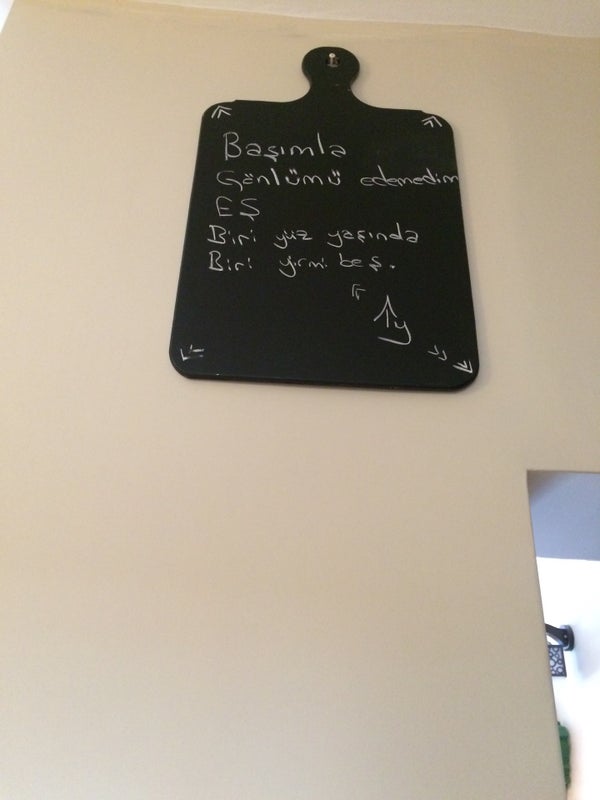 Başımla
Gönlümü edemedim
EŞ
Biri yüz yaşında
Biri yirmi beş.